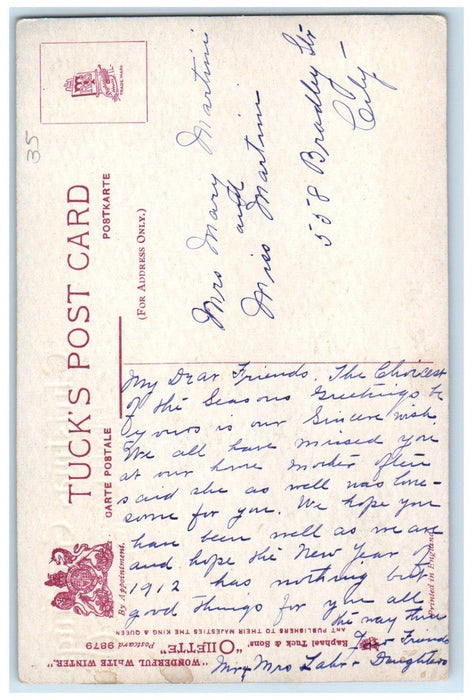 35
TRADE MARK
TUCK'S POST CARD
CARTE POSTALE
POSTKARTE
(FOR ADDRESS ONLY.)
By Appointment.
Mrs Mary Martini
and
Miss Martini
558 Bradley Str
City
My Dear Friends. The Choicest
of the Seasons Greetings be
yours is our Sincere wish
We all have missed you
at our home Mother often
said she as well was lone-
some for you. We hope you
have been well as we are
and hope the New Year of
1912 has nothing but
good things for you all
the way thru
Your Friends
Mr & Mrs Lahr & Daughters
Printed in England.
Raphael Tuck & Sons' "OILETTE"
ART PUBLISHERS TO THEIR MAJESTIES THE KING & QUEEN
"WONDERFUL WHITE WINTER."
Postcard 9879